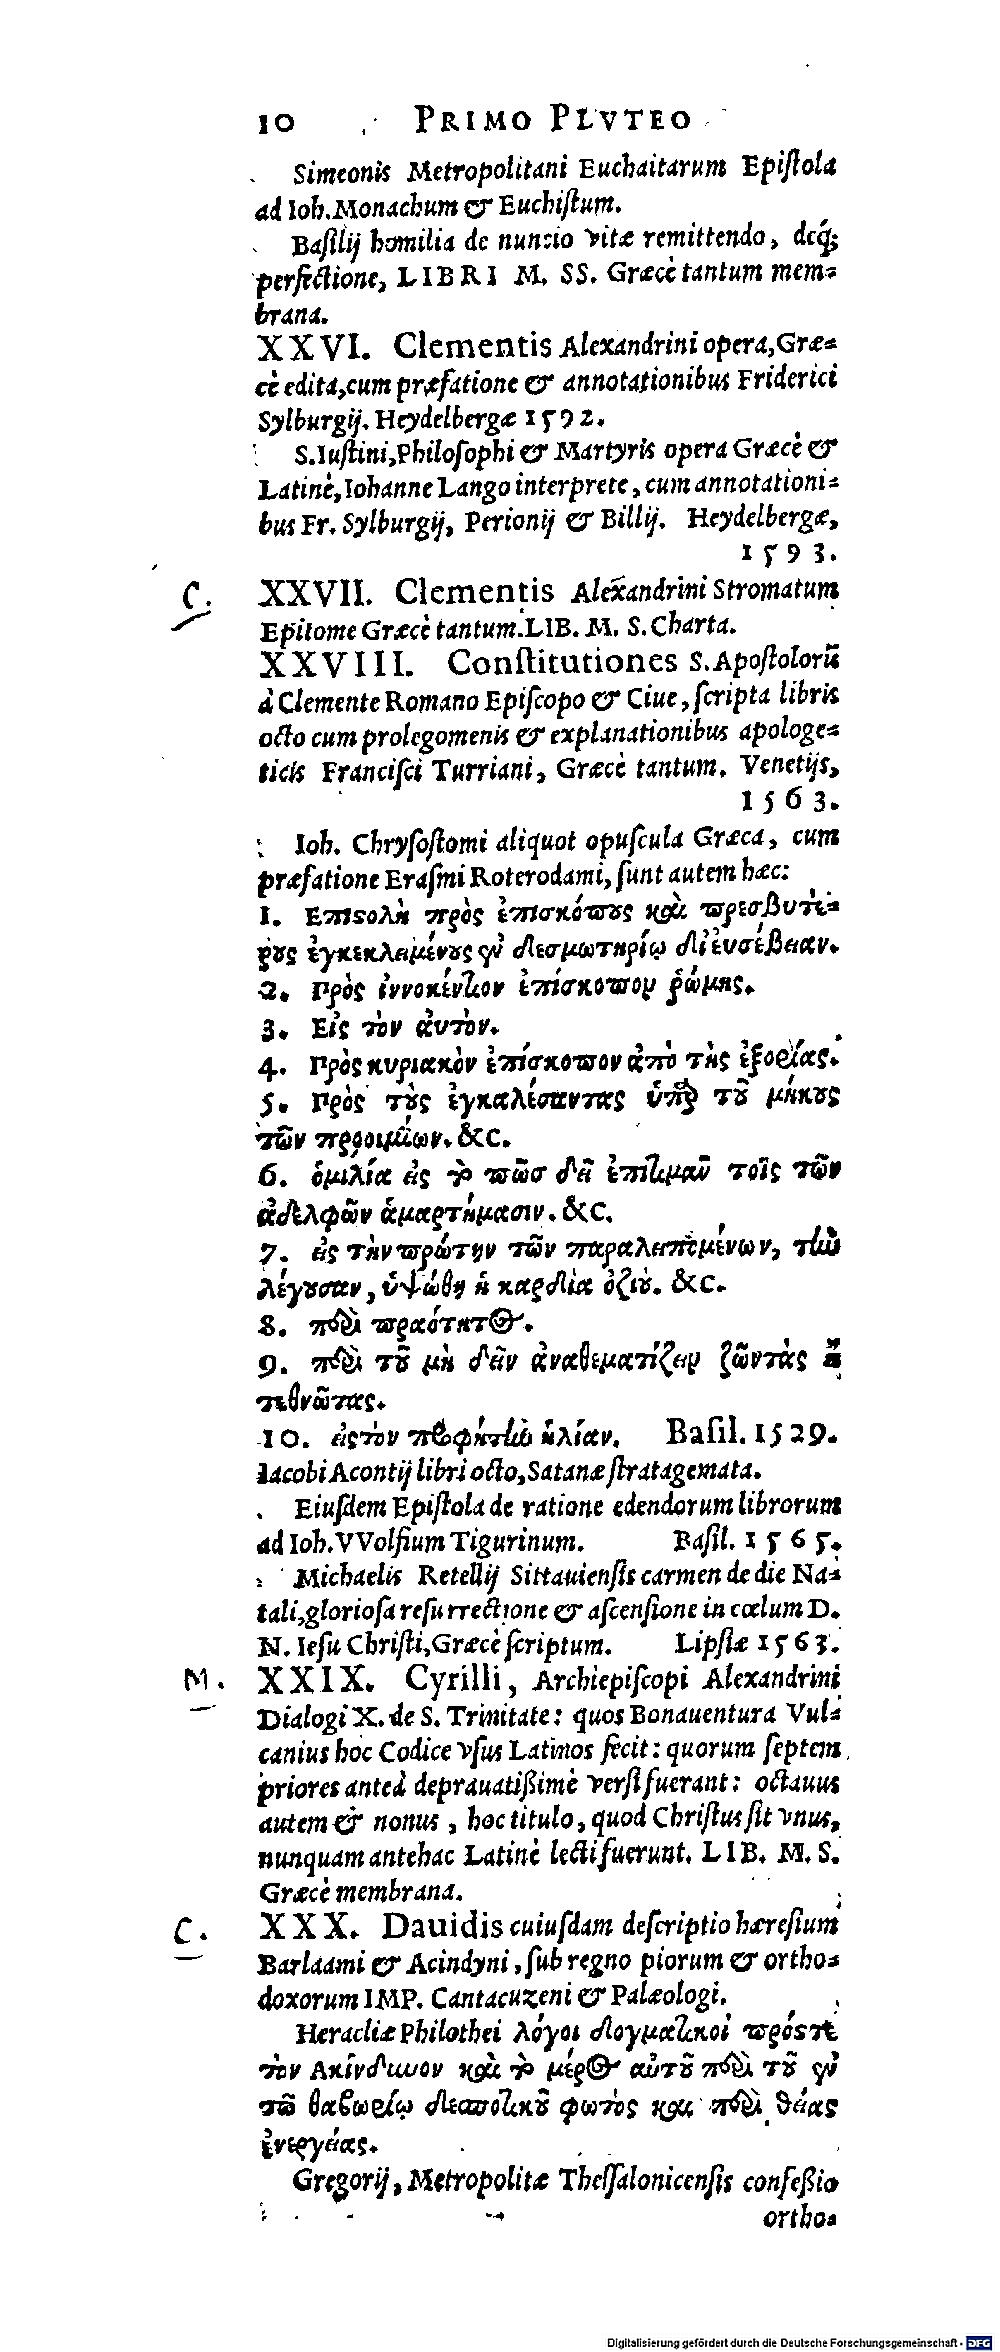 10 PRIMO PLVTEO
Simeonis Metropolitani Euchaitarum Epiſtola
ad Ioh. Monachum & Euchiſtum.
Baſilij homilia de nuncio vitæ remittendo, deq́;
perfectione, LIBRI M. SS. Græcè tantum mem-
brana.
XXVI. Clementis Alexandrini opera, Græ-
cè edita, cum præfatione & annotationibus Friderici
Sylburgij. Heydelbergæ 1592.
S. Iuſtini, Philoſophi & Martyris opera Græcè &
Latinè, Iohanne Lango interprete, cum annotationi-
bus Fr. Sylburgij, Perionij & Billij. Heydelbergæ,
1593.
C. XXVII. Clementis Alexandrini Stromatum
Epitome Græcè tantum. LIB. M. S. Charta.
XXVIII. Conſtitutiones S. Apoſtolorū
à Clemente Romano Epiſcopo & Ciue, ſcripta libris
octo cum prolegomenis & explanationibus apologe-
ticis Franciſci Turriani, Græcè tantum. Venetijs,
1563.
Ioh. Chryſoſtomi aliquot opuſcula Græca, cum
præfatione Eraſmi Roterodami, ſunt autem hæc:
1. Επιϛολὴ πρὸς ἐπισκόπους καὶ πρεσβυτέ-
ρους ἐγκεκλειμένους ἐν δεσμωτηρίῳ δι' ἐυσέβειαν.
2. Πρὸς ἰννοκέντιον ἐπίσκοπον ῥώμης.
3. Εἰς τὸν ἀυτὸν.
4. Πρὸς κυριακὸν ἐπίσκοπον ἀπὸ τῆς ἐξορίας.
5. Πρὸς τοὺς ἐγκαλέσαντας ὑπὲρ τοῦ μήκους
τῶν προοιμίων. &c.
6. ὁμιλία εἰς τὸ πῶσ δεῖ ἐπιτιμᾶν τοῖς τῶν
ἀδελφῶν ἁμαρτήμασιν. &c.
7. εἰς τὴν πρώτην τῶν παραλειπομένων, τὴν
λέγουσαν, ὑψώθη ἡ καρδία ὀζιού. &c.
8. περὶ πραότητος.
9. περὶ τοῦ μὴ δεῖν ἀναθεματίζειν ζῶντας ἢ
τεθνῶτας.
10. εἰς τὸν προφήτην ἠλίαν. Baſil. 1529.
Iacobi Acontij libri octo, Satanæ ſtratagemata.
Eiuſdem Epiſtola de ratione edendorum librorum
ad Ioh. VVolfium Tigurinum. Baſil. 1565.
Michaelis Retellij Sittauienſis carmen de die Na-
tali, glorioſa reſurrectione & aſcenſione in cœlum D.
N. Ieſu Chriſti, Græcè ſcriptum. Lipſiæ 1563.
M. XXIX. Cyrilli, Archiepiſcopi Alexandrini
Dialogi X. de S. Trinitate: quos Bonauentura Vul-
canius hoc Codice vſus Latinos fecit: quorum ſeptem
priores anteà deprauatißimè verſi fuerant: octauus
autem & nonus, hoc titulo, quod Chriſtus ſit vnus,
nunquam antehac Latinè lecti fuerunt. LIB. M. S.
Græcè membrana.
C. XXX. Dauidis cuiuſdam deſcriptio hæreſium
Barlaami & Acindyni, ſub regno piorum & ortho-
doxorum IMP. Cantacuzeni & Palæologi.
Heracliæ Philothei λόγοι δογματικοὶ πρόσ τε
τὸν Ακίνδυνον καὶ τὸ μέρος αὐτοῦ περὶ τοῦ ἐν
τῶ θαβωρίῳ δεσποτικοῦ φωτὸς καὶ περὶ θείας
ἐνεργείας.
Gregorij, Metropolitæ Theſſalonicenſis confeßio
ortho-
Digitalisierung gefördert durch die Deutsche Forschungsgemeinschaft - DFG